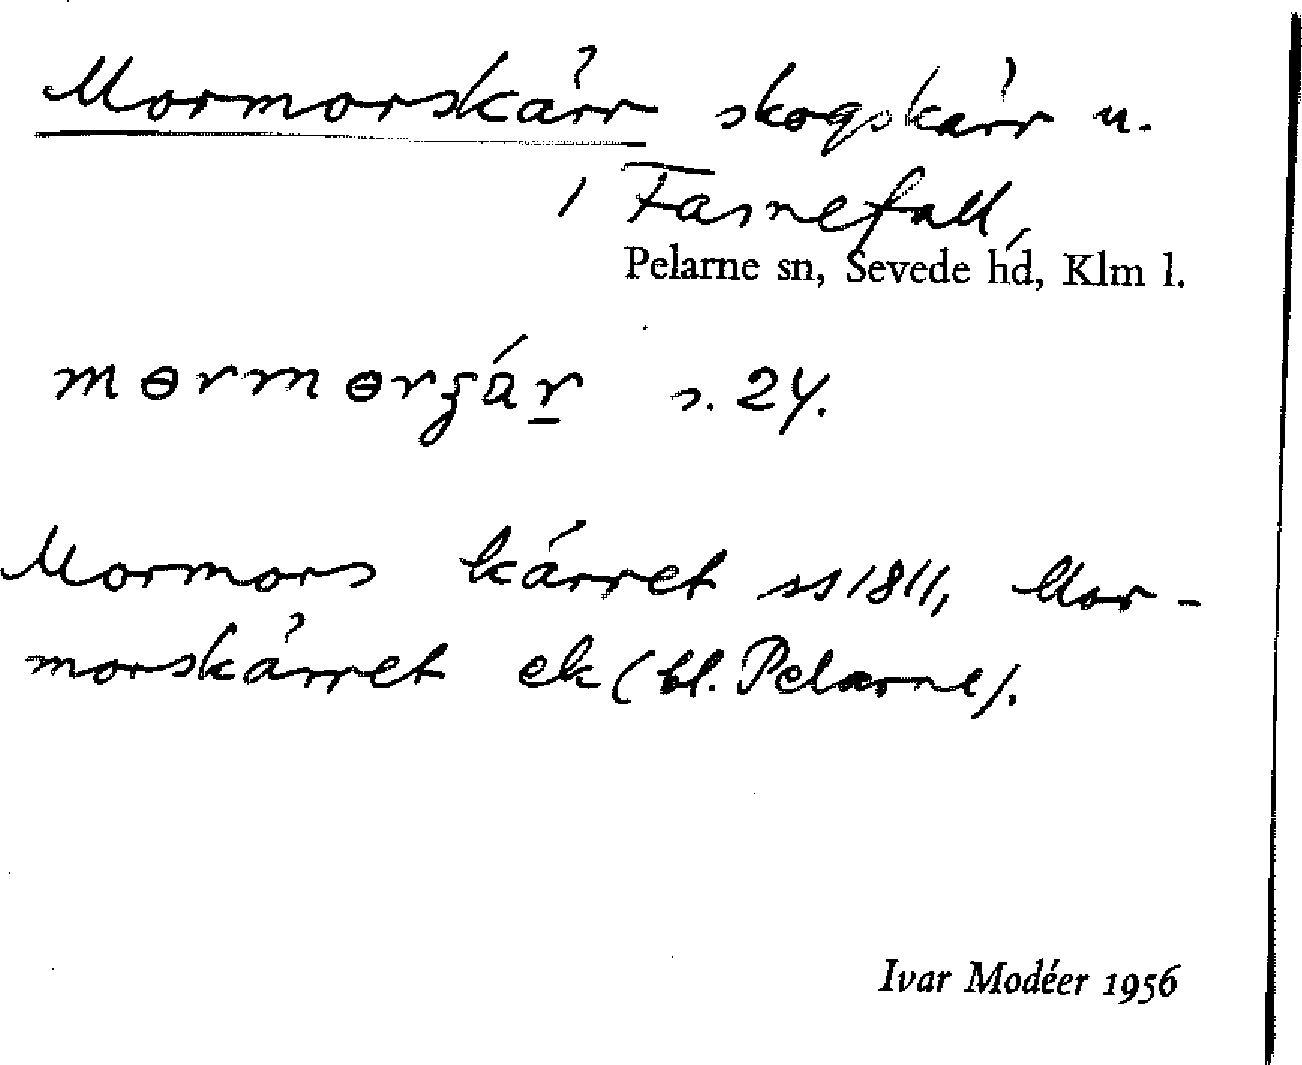 Mormorskärr skogskärr u.
i Fasnefall,
Pelarne sn, Sevede hd, Klm l.
s. 24.
Mormors kärret ss 1811, Mor-
morskärret ek (bl. Pelarne).
Ivar Modéer 1956